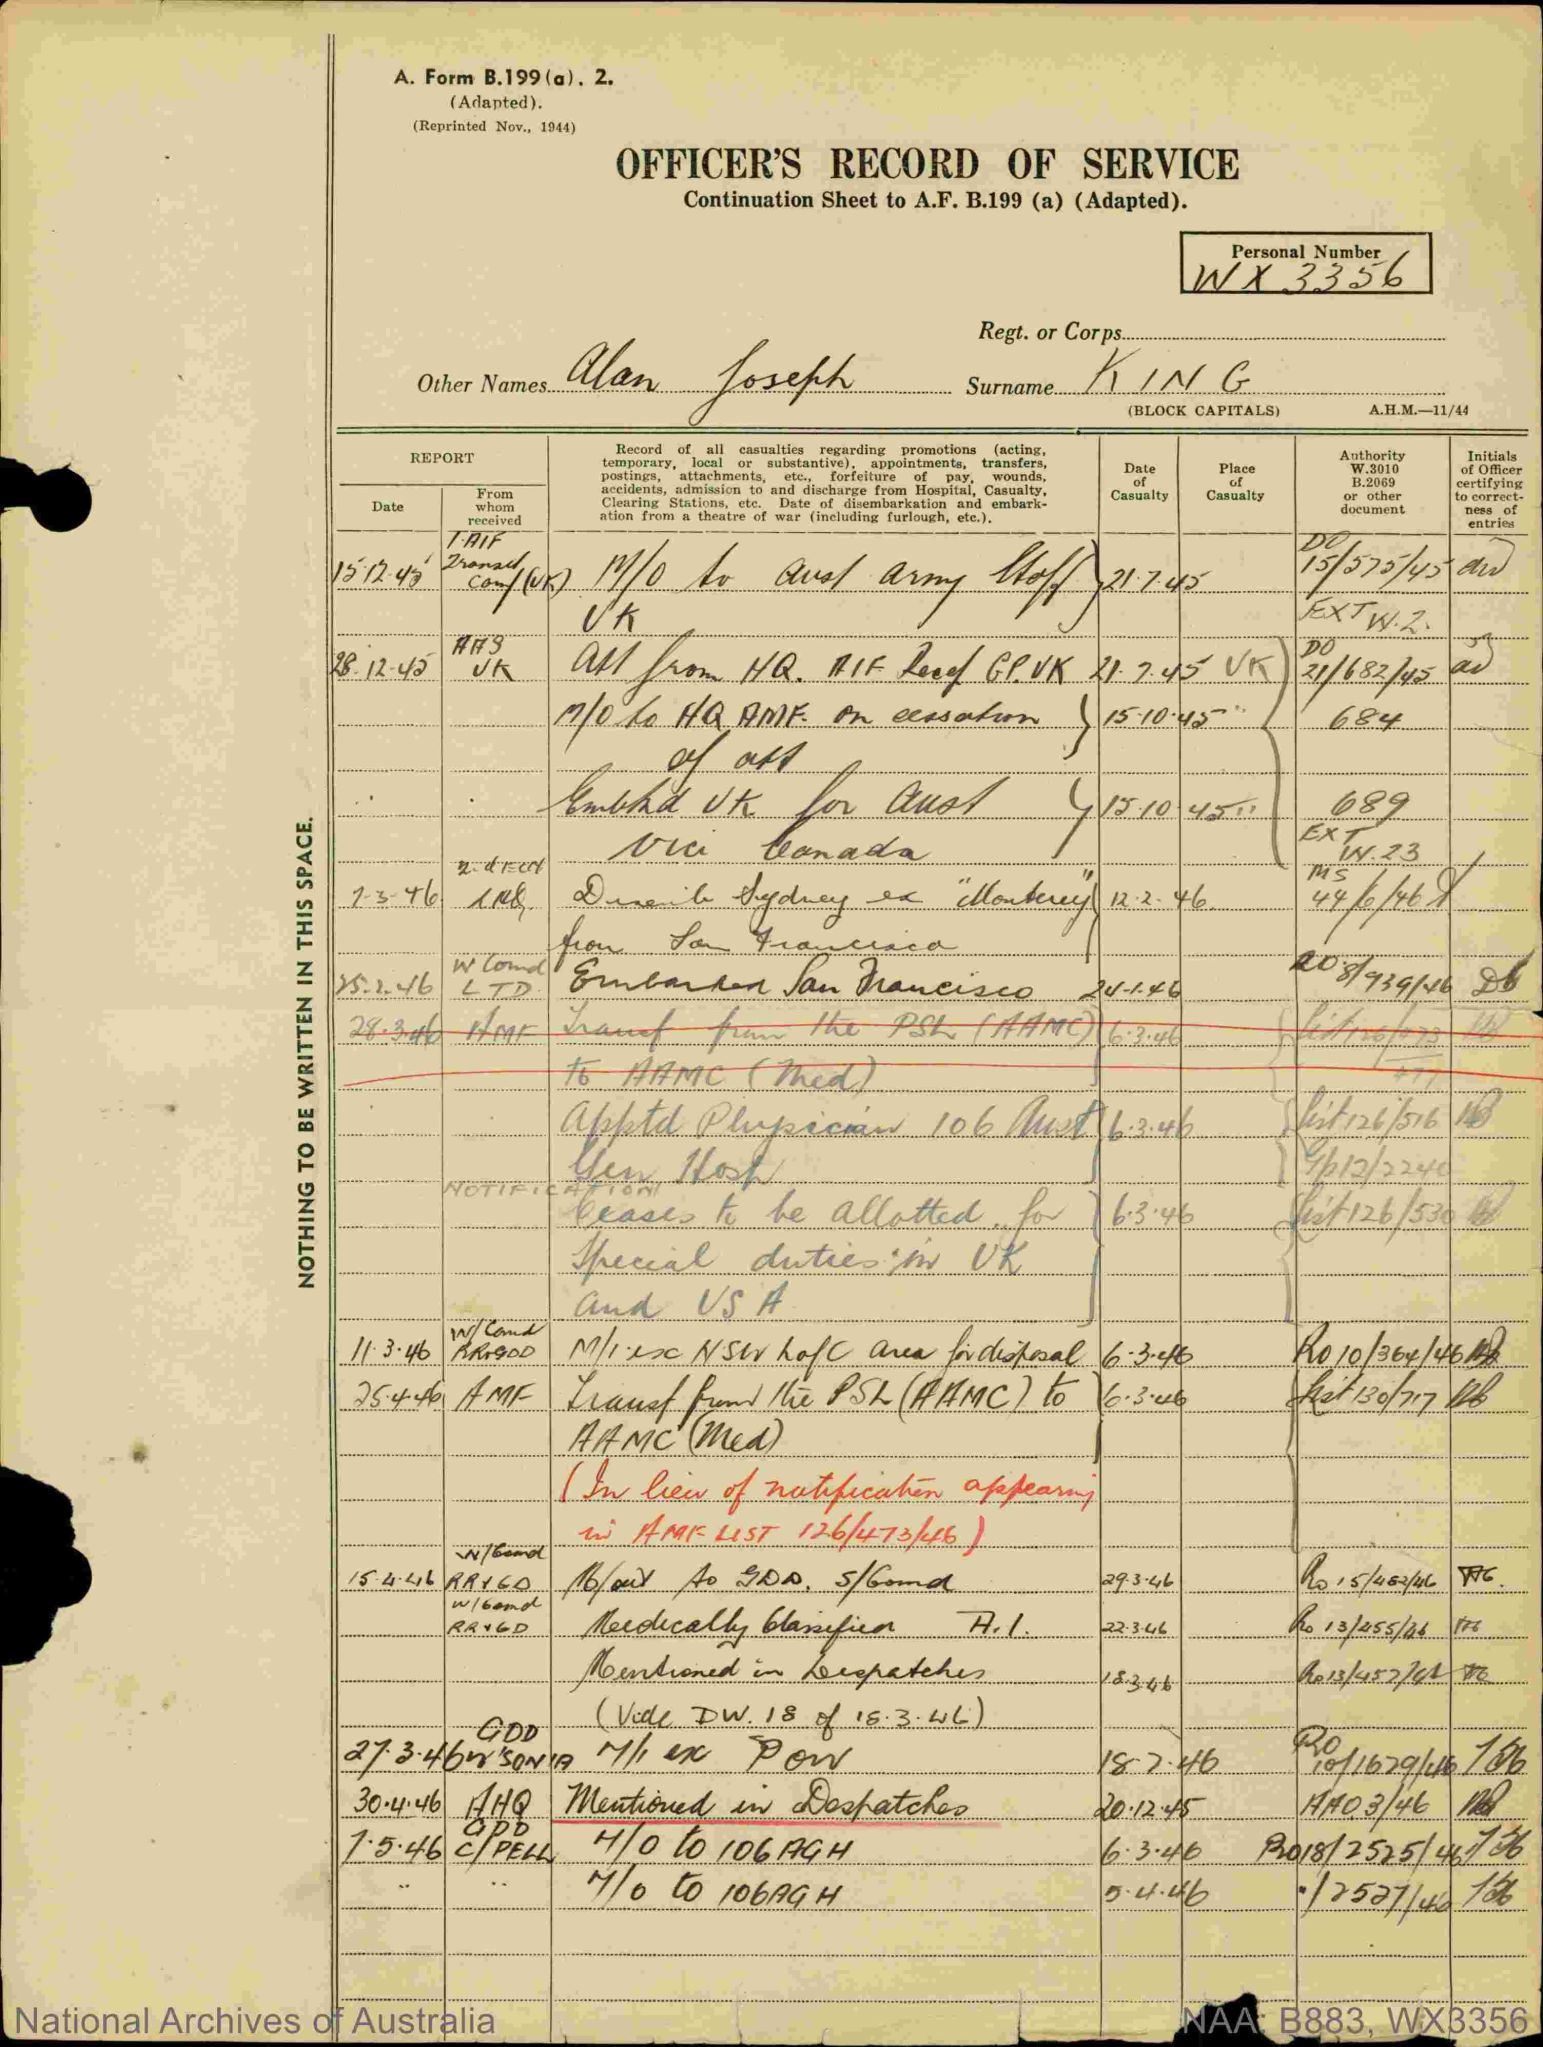 A. Form B.199(a). 2.
(Adapted).
(Reprinted Nov., 1944)
OFFICER'S RECORD OF SERVICE
Continuation Sheet to A.F. B.199 (a) (Adapted).
Personal Number
WX 3356
Regt. or Corps
Other Names Alan Joseph Surname KING
(BLOCK CAPITALS) A.H.M.—11/44
REPORT
Date
From whom received
Record of all casualties regarding promotions (acting,
temporary, local or substantive), appointments, transfers,
postings, attachments, etc., forfeiture of pay, wounds,
accidents, admission to and discharge from Hospital, Casualty,
Clearing Stations, etc. Date of disembarkation and embark-
ation from a theatre of war (including furlough, etc.).
Date of Casualty
Place of Casualty
Authority W.3010 B.2069 or other document
Initials of Officer certifying to correct-ness of entries
1 AIF DO
15.12.45 Transit Camp (UK) M/O to Aust Army Staff 21.7.45 15/575/45
UK EXT W.2.
AAS DO
28.12.45 UK Att from HQ. AIF Recep GP. UK 21.7.45 UK 21/682/45
M/O to HQ AMF. on cessation 15.10.45 " 684
of att
Embkd UK for Aust 15.10.45 " 689
via Canada EXT W.23
MS
7.3.46 Disemb Sydney ex "Monterey" 12.2.46. 44/6/46
from San Francisco
W Comd
25.2.46 LTD Embarked San Francisco 24.1.46 RO.8/939/46
28.3.46 AMF Transf from the PSL (AAMC) 6.3.46 List 126/473
to AAMC (Med) 477
Apptd Physician 106 Aust 6.3.46 List 126/516
Gen Hosp Gp12/2240
NOTIFICATION
Ceases to be allotted for 6.3.46 List 126/530
special duties in UK
and USA
W/Comd
11.3.46 RR&GDD M/i ex NSW L of C area for disposal 6.3.46 Ro 10/364/46
25.4.46 AMF Transf from the PSL (AAMC) to 6.3.46 List 130/717
AAMC (Med)
(In lieu of notification appearing
in AMF LIST 126/473/46)
W/Comd
15.4.46 RR&GD M/out to GDD. S/Comd 29.3.46 Ro 15/482/46
W/Comd
RR&GD Medically Classified A.1. 22.3.46 Ro 13/455/46
Mentioned in Despatches 18.3.46 Ro 13/452/46
(Vide DW. 18 of 18.3.46)
GDD RO
27.3.46 W'SONIA M/i ex POW 18.2.46 10/1629/46
30.4.46 AHQ Mentioned in Despatches 20.12.45 AAO 3/46
GDD
7.5.46 C/PELL M/O to 106 AGH 6.3.46 RO18/2525/46
" " M/O to 106 AGH 5.4.46 "/2527/46
NOTHING TO BE WRITTEN IN THIS SPACE.
National Archives of Australia
NAA: B883, WX3356